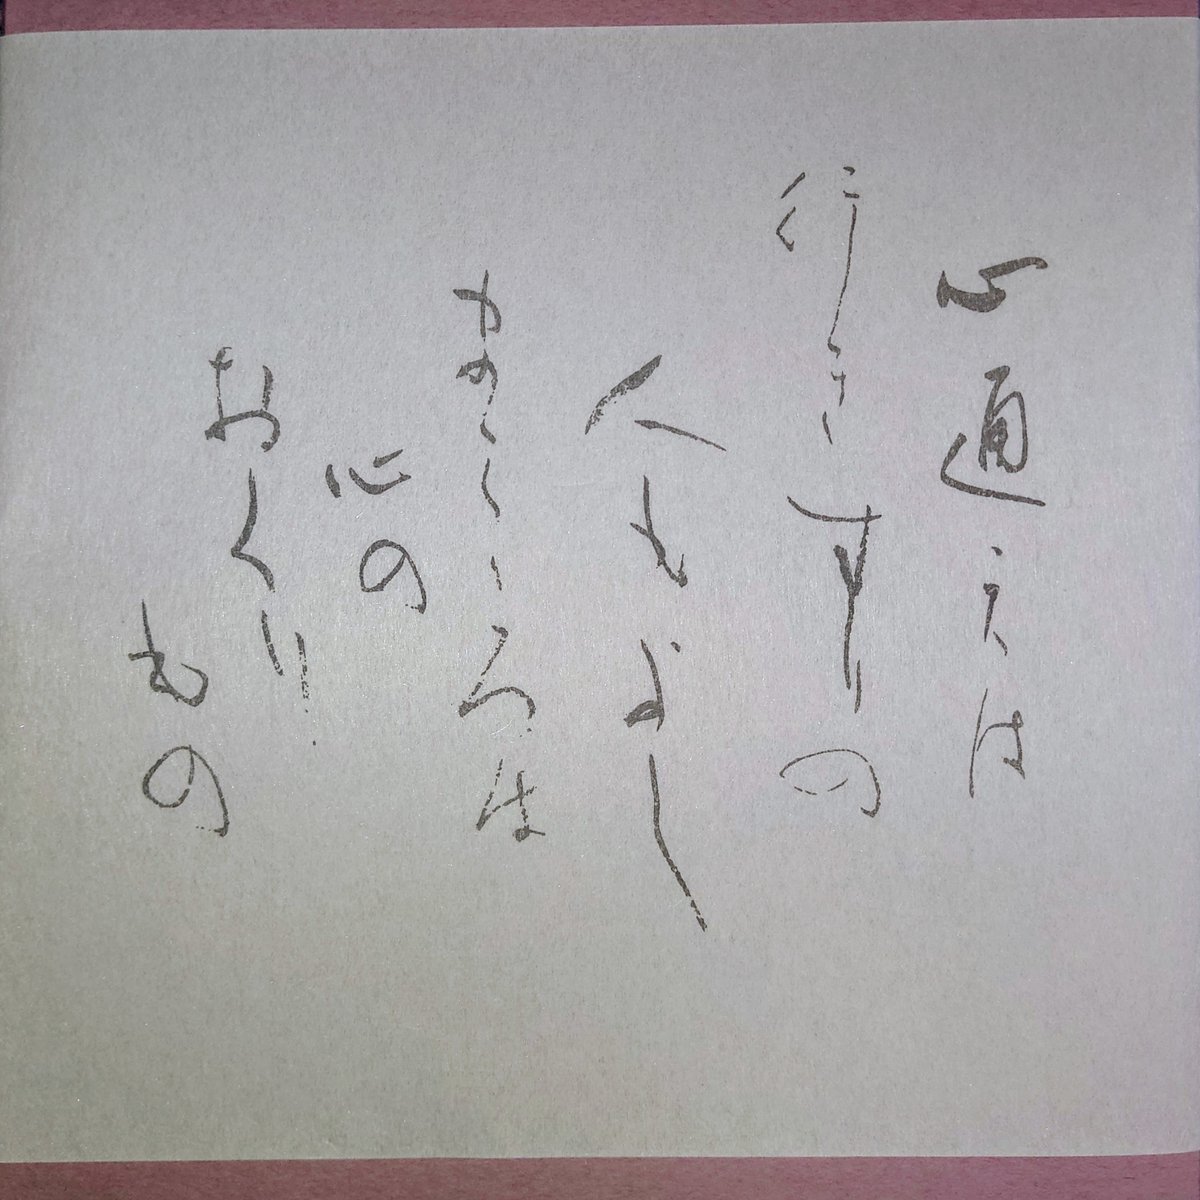 心通えは
行きずりの
人もよし
まごころは
心の
おくり
もの